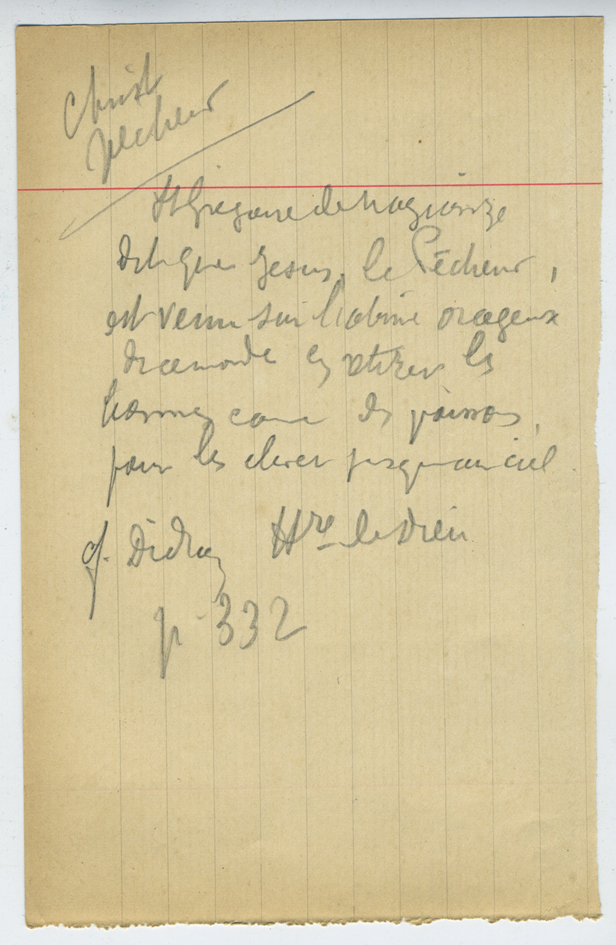 Christ
pecheur
St Gregoire de Nazianze
dit que Jesus, le Pêcheur,
est venu sur l'abime orageux
de ce monde en retirer les
hommes comme des poissons,
pour les elever jusqu'au ciel.
cf. Didron Hre de Dieu
p. 332